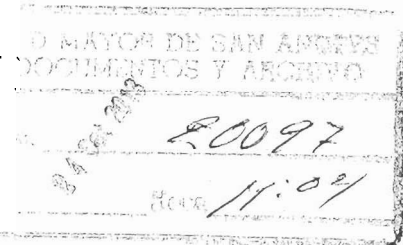 D MAYOR DE SAN ANDRES
DOCUMENTOS Y ARCHIVO
20097
Hora 11:04